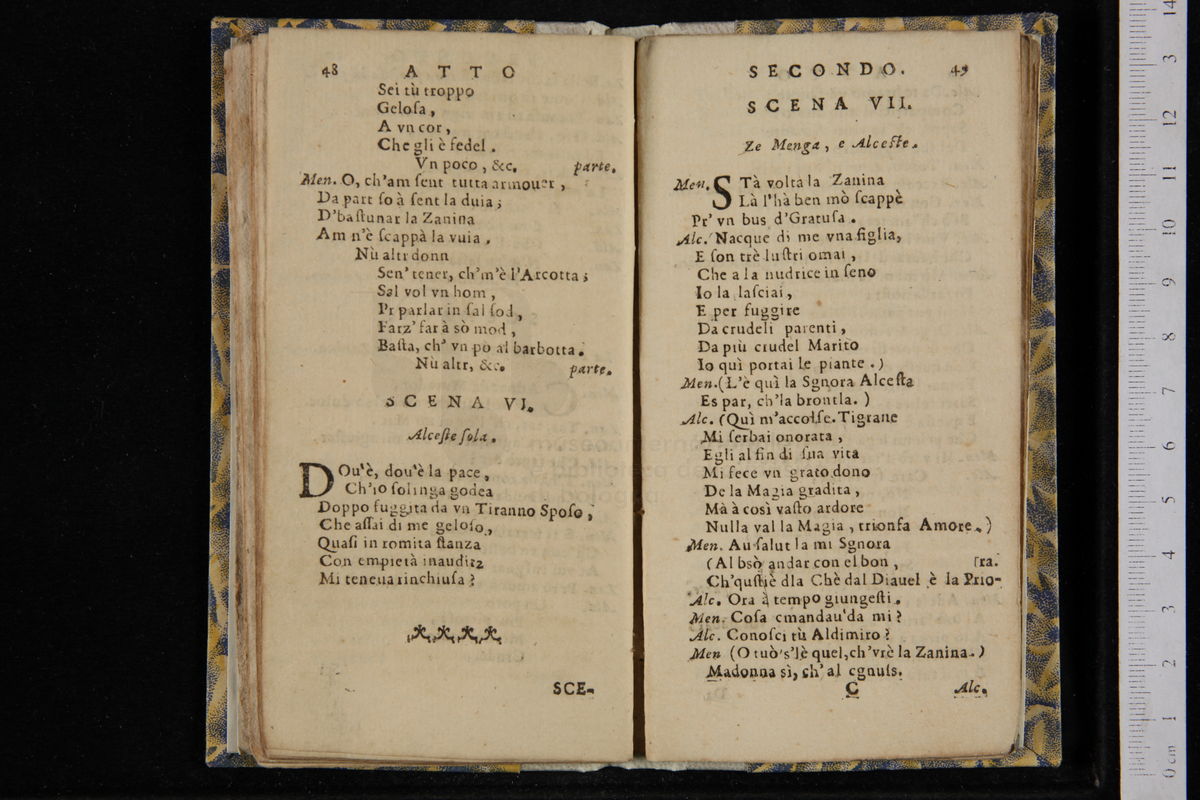 48 ATTO
Sei tù troppo
Geloſa,
A vn cor,
Che gli è fedel.
Vn poco, &c. parte.
Men. O, ch'am ſent tutta armouer,
Da part ſo à ſent la duia;
D'baſtunar la Zanina
Am n'è ſcappà la vuia.
Nù altr donn
Sen' tener, ch'm'è l'Arcotta;
Sal vol vn hom,
Pr parlar in ſal ſod,
Farz' far à sò mod,
Baſta, ch' vn pò al barbotta.
Nù altr, &c. parte.
SCENA VI.
Alceſte ſola.
DOu'è, dou'è la pace,
Ch'io ſolinga godea
Doppo fuggita da vn Tiranno Spoſo,
Che aſſai di me geloſo,
Quaſi in romita ſtanza
Con empietà inaudita
Mi teneua rinchiuſa?
SCE-
SECONDO. 49
SCENA VII.
Ze Menga, e Alceſte.
Men. STà volta la Zanina
Là l'hà ben mò ſcappè
Pr' vn bus d'Gratuſa.
Alc. Nacque di me vna figlia,
E ſon trè luſtri omai,
Che a la nudrice in ſeno
Io la laſciai,
E per fuggire
Da crudeli parenti,
Da più crudel Marito
Io quì portai le piante.)
Men. (L'è quì la Sgnora Alceſta
Es par, ch'la brontla.)
Alc. (Quì m'accolſe Tigrane
Mi ſerbai onorata,
Egli al fin di ſua vita
Mi fece vn grato dono
De la Magia gradita,
Mà à così vaſto ardore
Nulla val la Magia, trionfa Amore.)
Men. Au ſalut la mi Sgnora
(Al bsò andar con el bon, [ra.
Ch'quſtiè dla Chè dal Diauel è la Prio-
Alc. Ora à tempo giungeſti.
Men. Coſa cmandau'da mi?
Alc. Conoſci tù Aldimiro?
Men (O tuò's'lè quel, ch'vrè la Zanina.)
Madonna sì, ch' al cgnuſs.
C Alc.